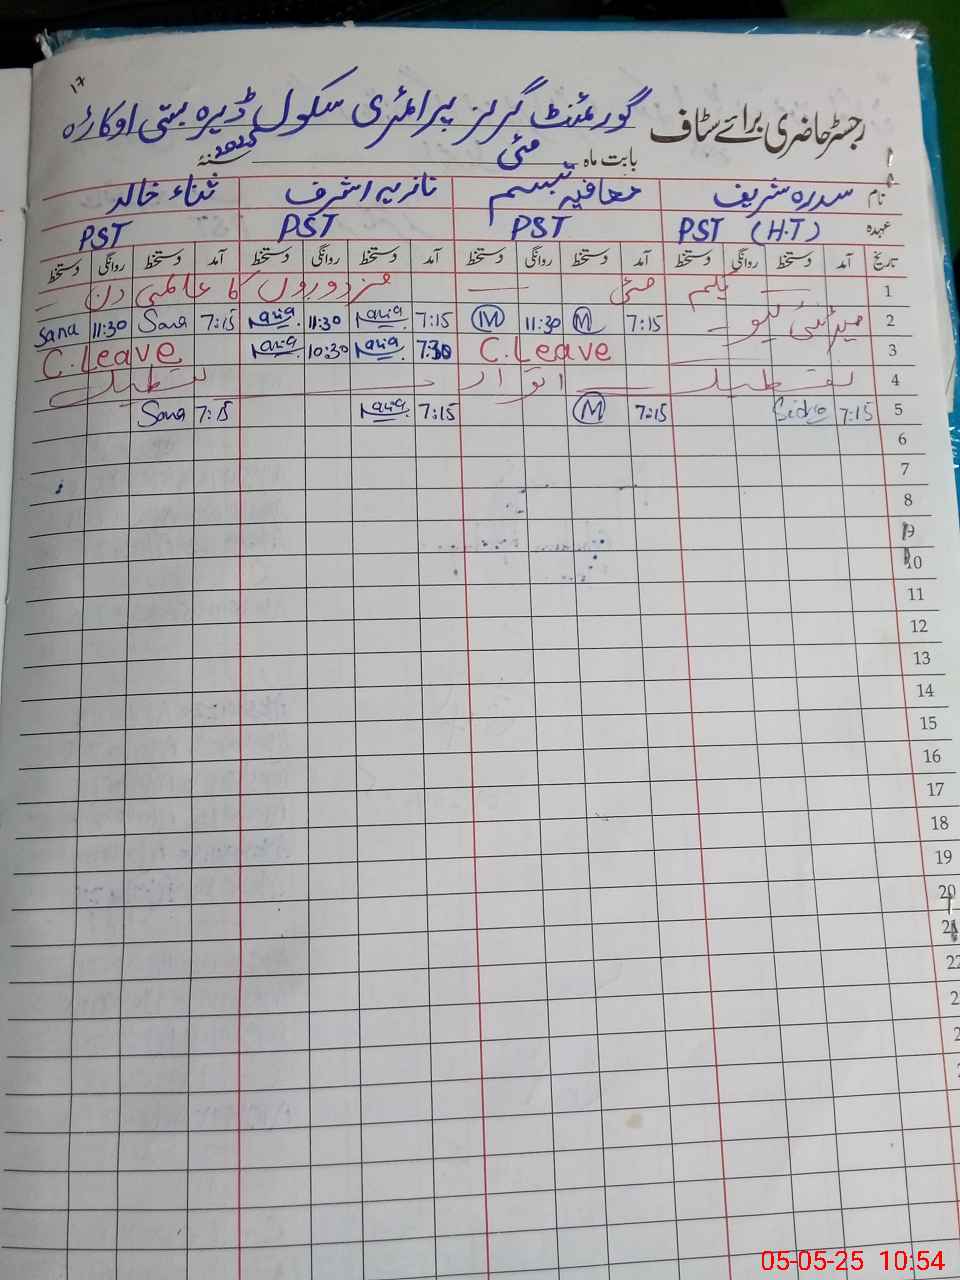 ۱۷
رجسٹر حاضری برائے سٹاف گورنمنٹ گرلز پرائمری سکول ڈیرہ بستی اوکاڑہ
بابت ماہ مئی 2025 سنہ
نام سدرہ شریف معافیہ تبسم نازیہ اشرف ثناء خالد
عہدہ PST (H.T) PST PST PST
تاریخ آمد دستخط روانگی دستخط آمد دستخط روانگی دستخط آمد دستخط روانگی دستخط آمد دستخط روانگی دستخط
1 یکم مئی مزدوروں کا عالمی دن
2 7:15 M 11:30 M 7:15 Naria 11:30 Naria 7:15 Sana 11:30 Sana
3 C.Leave 7:30 Naria 10:30 Naria C.Leave
4 تعطیل اتوار تعطیل
5 7:15 Sidra 7:15 M 7:15 Naria 7:15 Sana
6
7
8
9
10
11
12
13
14
15
16
17
18
19
20
21
22
05-05-25 10:54